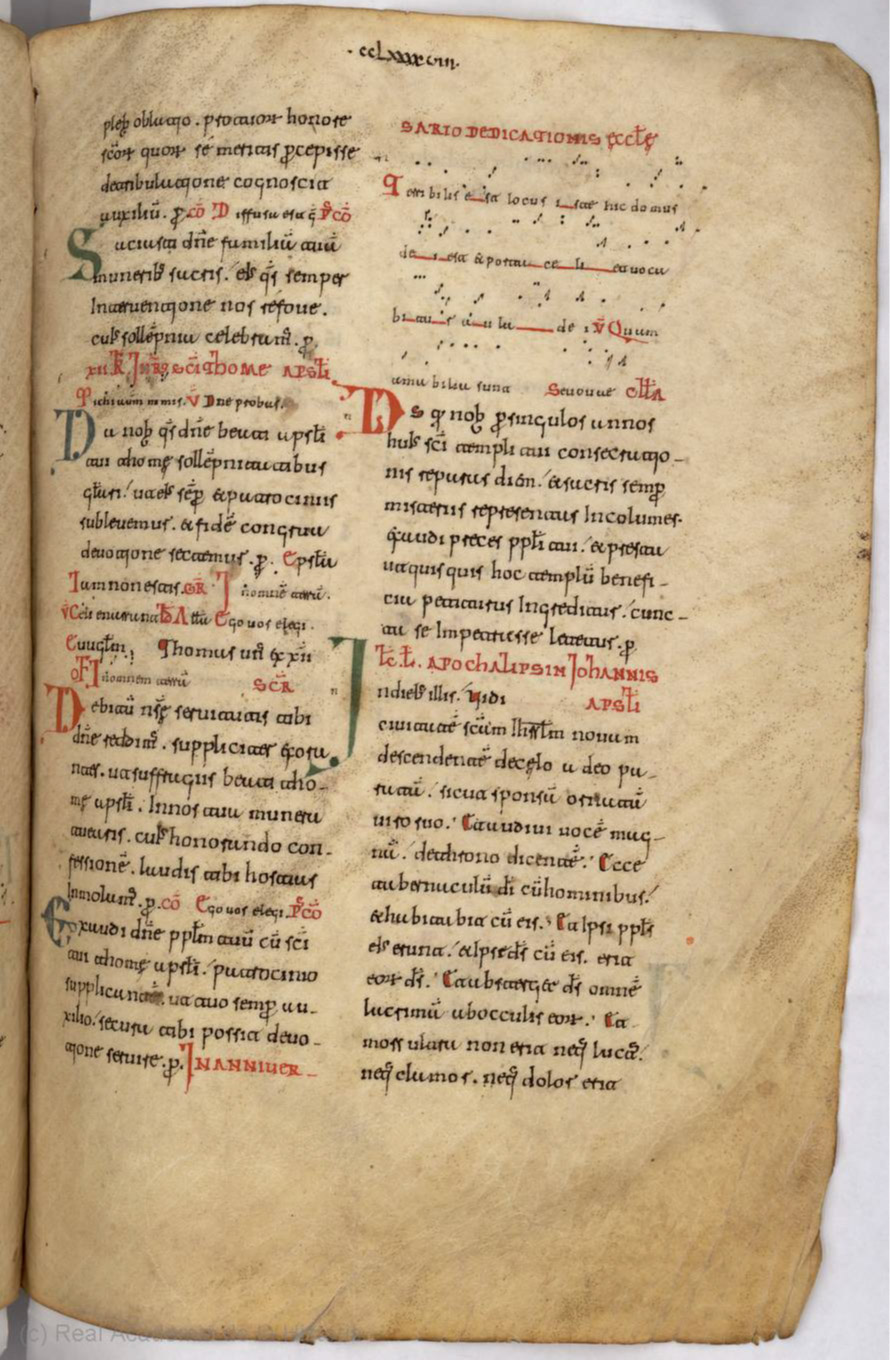 ·ccLxxxxviii·
plebs oblatio. p̄ tuoꝝ honore
sc̄oꝝ quoꝝ sé meritis p̄cepisse
detribulatione cognoscit
auxiliū. ꝑ. cō Diffusa est ḡ P̄cō
Saciasti dn̄e familiā tuā
muneribs sacris. ei᷒ q̄s semper
Interuentione nos refoue.
cui᷒ sollēpnia celebram̄. ꝑ.
xii K̄ Jn̄rs sc̄i thome apstl̄i
Michi autem nimis. V̄ Dne probas.
Da nob qs̄ dn̄e beati apstl̄i
tui thomę sollēpnitatibus
gl̄ari. ut ei᷒ sēp & patrociniis
subleuemur. & fidē congrua
deuotione sectemur. ꝑ. Epstl̄a
Iam non estis. GR̄ In omnē terrā.
V̄ Celi enarrant All̄a Ego uos elegi.
Euuglm̄. Thomas un̄ ex xii
OF̄ In omnem terrā SCR̄
Debitū nr̄ę seruitutis tibi
dn̄e reddim̄. suppliciter exora
ntes. ut suffragiis beati tho-
mę apstl̄i. In nos tua munera
tuearis. cui᷒ honorando con-
fessionē. laudis tibi hostias
Inmolam̄. ꝑ. cō Ego uos elegi. P̄cō
Exaudi dn̄e pplm̄ tuū cū sc̄i
tui thomę apstl̄i. patrocinio
supplicantē. ut tuo semꝑ au-
xilio. secura tibi possit deuo-
tione seruire. ꝑ. IN ANNIUER-
SARIO DEDICATIONIS ęccłę
Terribilis est locus iste hic domus
dei est & porta celi & uoca
bitur aula dei V̄ Quam
amabilia sunt Seuouae Cll̄a
Ds̄ q̄ nob ꝑ singulos annos
hui᷒ sc̄i templi tui consecratio-
nis reparas diem. & sacris semꝑ
misteriis representas Incolumes.
exaudi preces ppl̄i tui. & presta
ut quisquis hoc templū benefi-
cia petiturus Ingreditur. cunc-
ta se Impetrasse letetur. ꝑ
L̄c̄. L̄. APOCHALIPSIN JOHANNIS
In dieb᷒ illis. Uidi APSTL̄I
ciuitatē sc̄am Ihrslm̄ nouam
descendentē decęlo a deo pa-
ratā. sicut sponsā ornatā
uiro suo. Et audiui uocē mag-
nā. dethrono dicentē. Ecce
tabernaculū dī cū hominibus.
& habitabit cū eis. Et ipsi ppl̄s
ei᷒ erunt. & ipse ds̄ cū eis. erit
eoꝝ ds̄. Et absterget ds̄ omnē
lacrimā ab occulis eoꝝ. Et
mors ultra non erit neq̄ luct᷒.
neq̄ clamor. neq̄ dolor erit